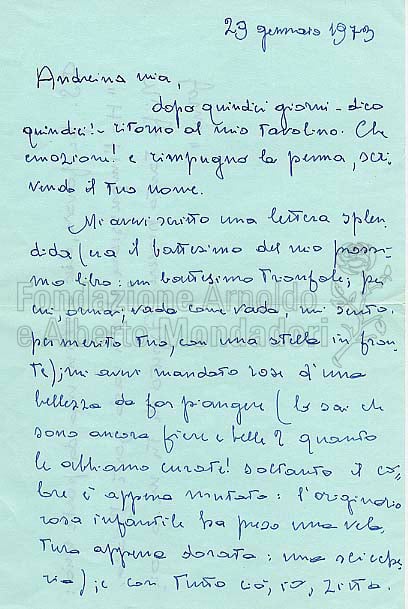 29 gennaio 1973
Andreina mia,
dopo quindici giorni - dico
quindici! - ritorno al mio tavolino. Che
emozioni! e rimpugno la penna, scri-
vendo il tuo nome.
Mi avevi scritto una lettera splen-
dida (era il battesimo del mio prossi-
mo libro: un battesimo trionfale; per
cui, ormai, vada come vada, mi sento,
per merito tuo, con una stella in fron-
te); mi avevi mandato rose d'una
bellezza da far piangere (lo sai che
sono ancora fiere e belle? quanto
le abbiamo curate! soltanto il co-
lore è appena mutato: l'originario
rosa infantile ha preso una vela-
tura appena dorata: una scicche-
ria); e con tutto ciò, io, zitta.
Fondazione Arnoldo
e Alberto Mondadori